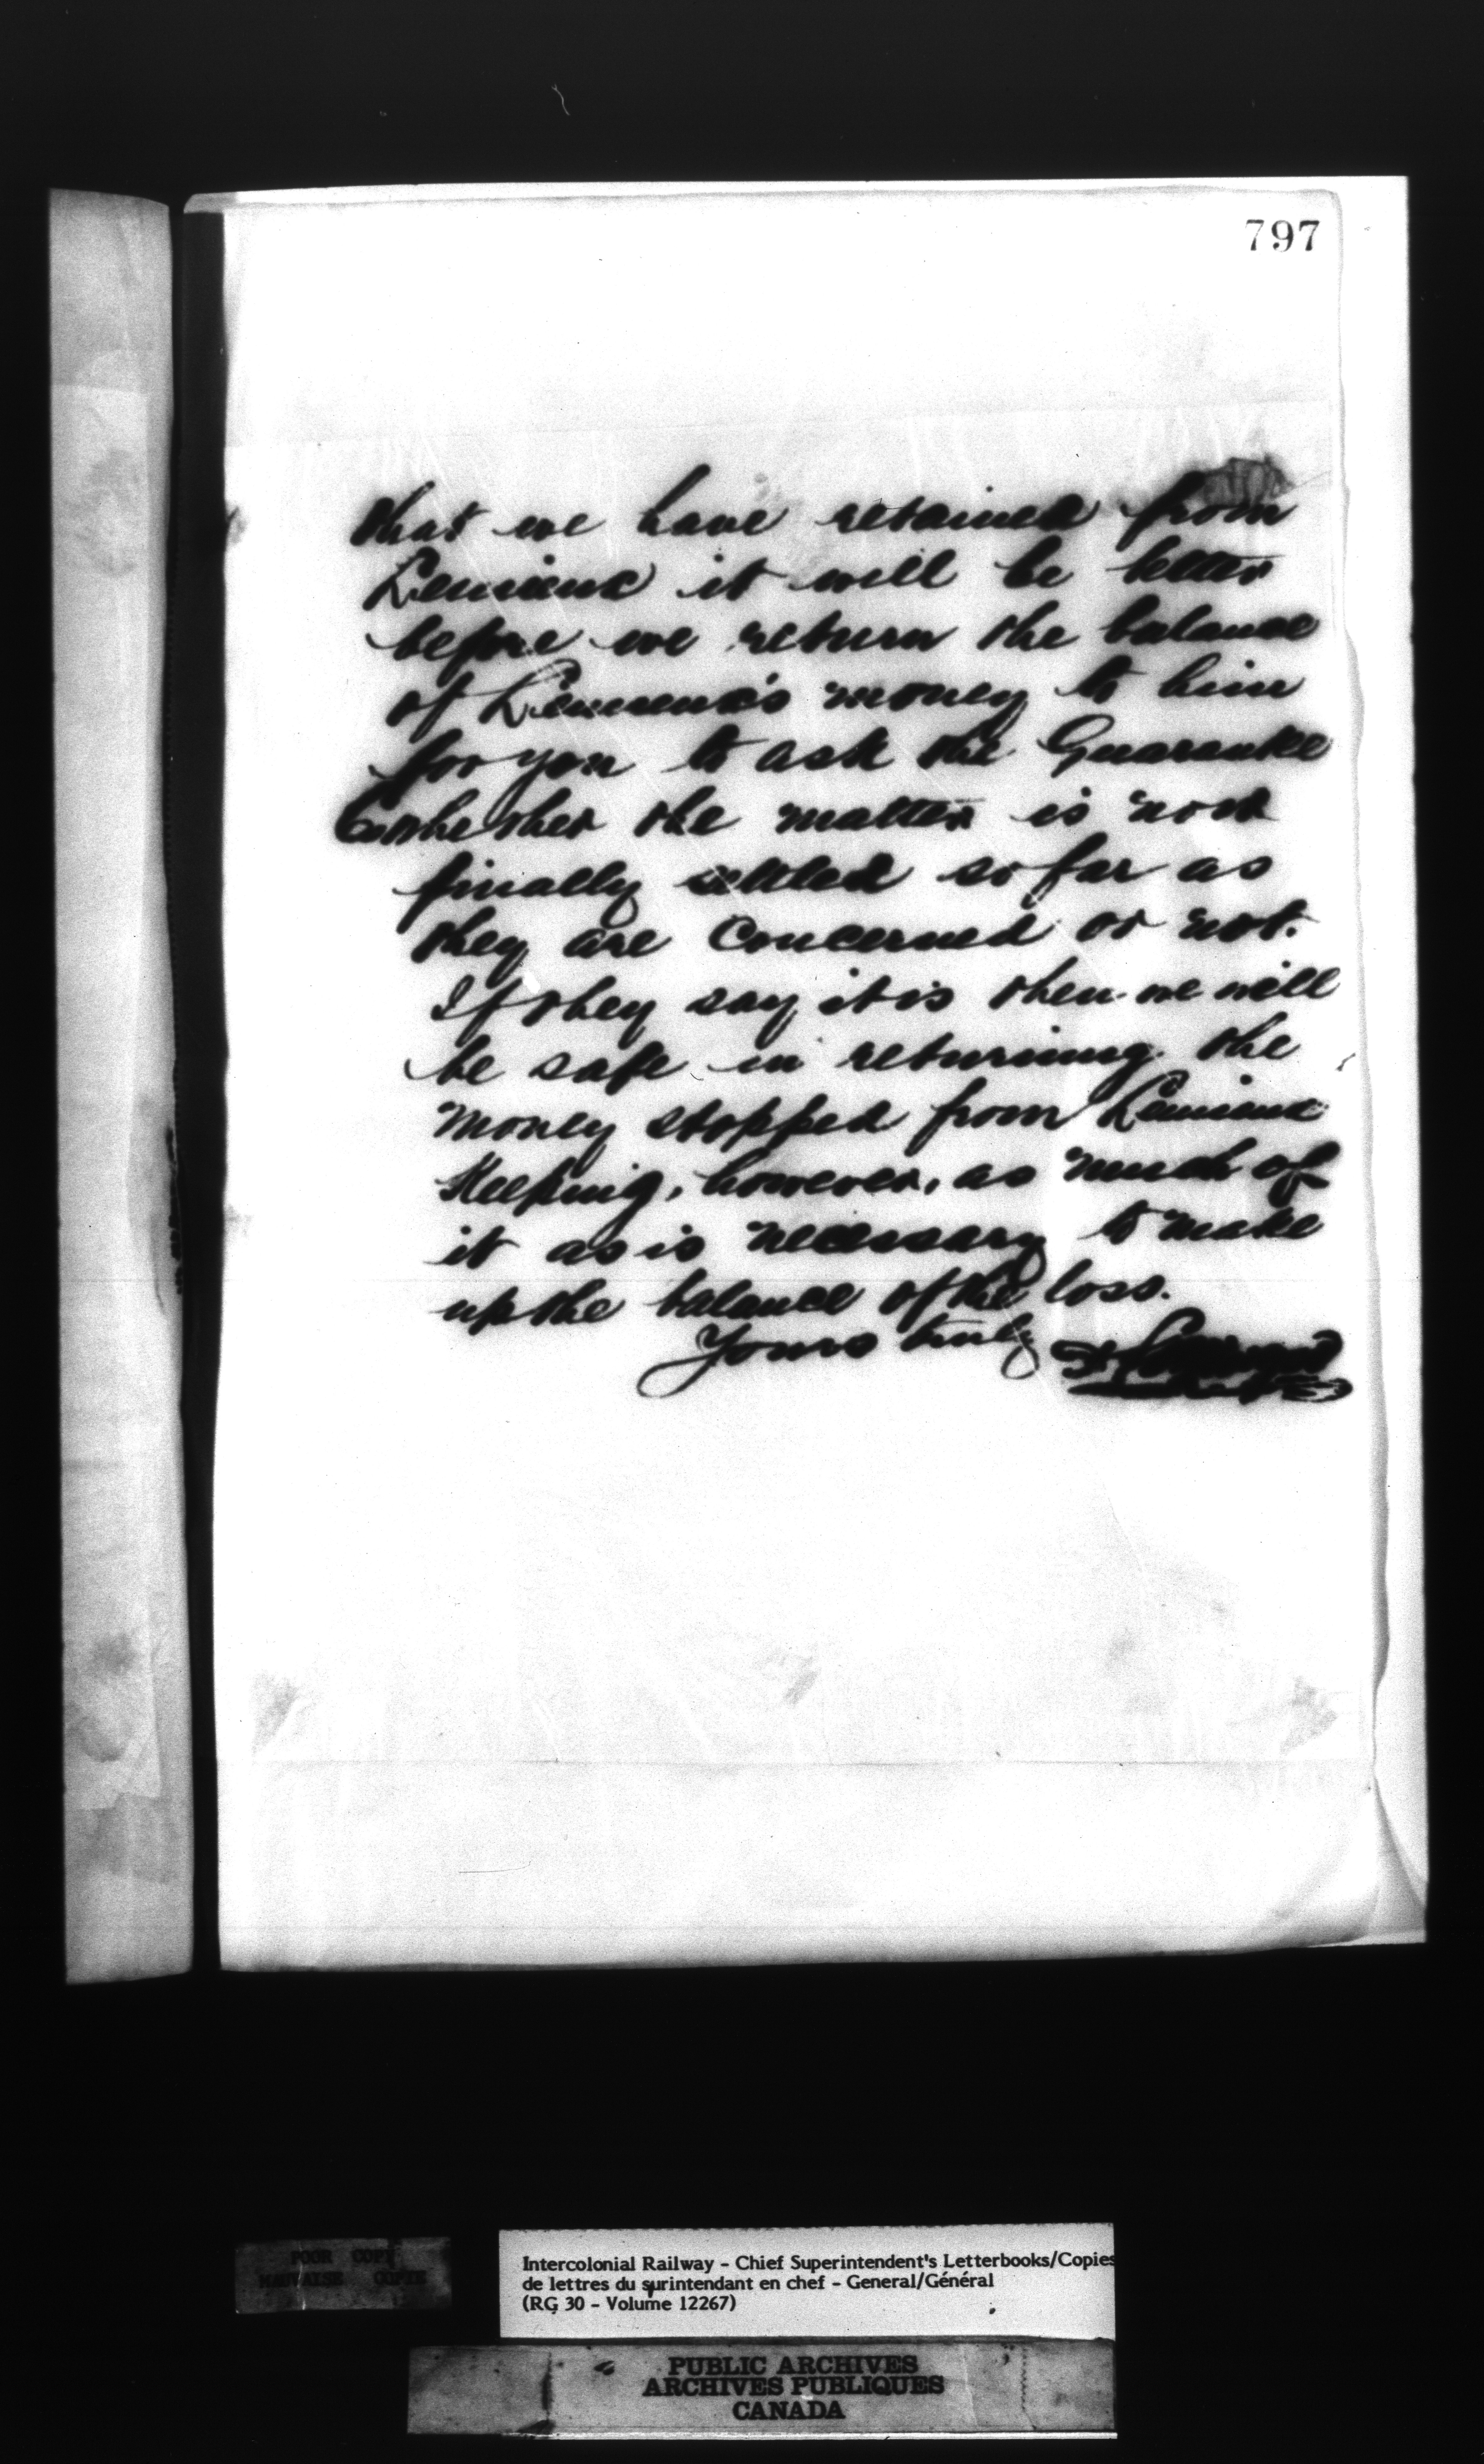 797
that we have retained from
Lemieux it will be better
before we return the balance
of Lemieux's money to him
for you to ask the Guarantee
Co whether the matter is now
finally settled so far as
they are concerned or not.
If they say it is then we will
be safe in returning the
money stopped from Lemieux
Keeping, however, as much of
it as is necessary to make
up the balance of the loss.
Yours truly
POOR COPY
MAUVAISE COPIE
Intercolonial Railway - Chief Superintendent's Letterbooks/Copies
de lettres du surintendant en chef - General/Général
(RG 30 - Volume 12267)
PUBLIC ARCHIVES
ARCHIVES PUBLIQUES
CANADA